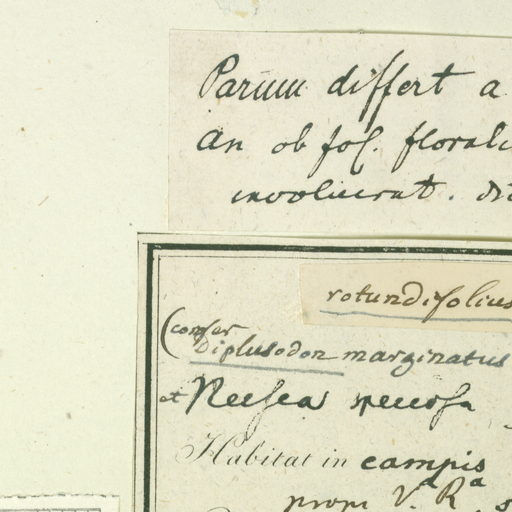 Parum differt a
An ob fol. florali
involucrat.
rotundifolius
(confer
Diplusodon marginatus
et Nesaea speciosa
Habitat in campis
prope V.ª R.ª